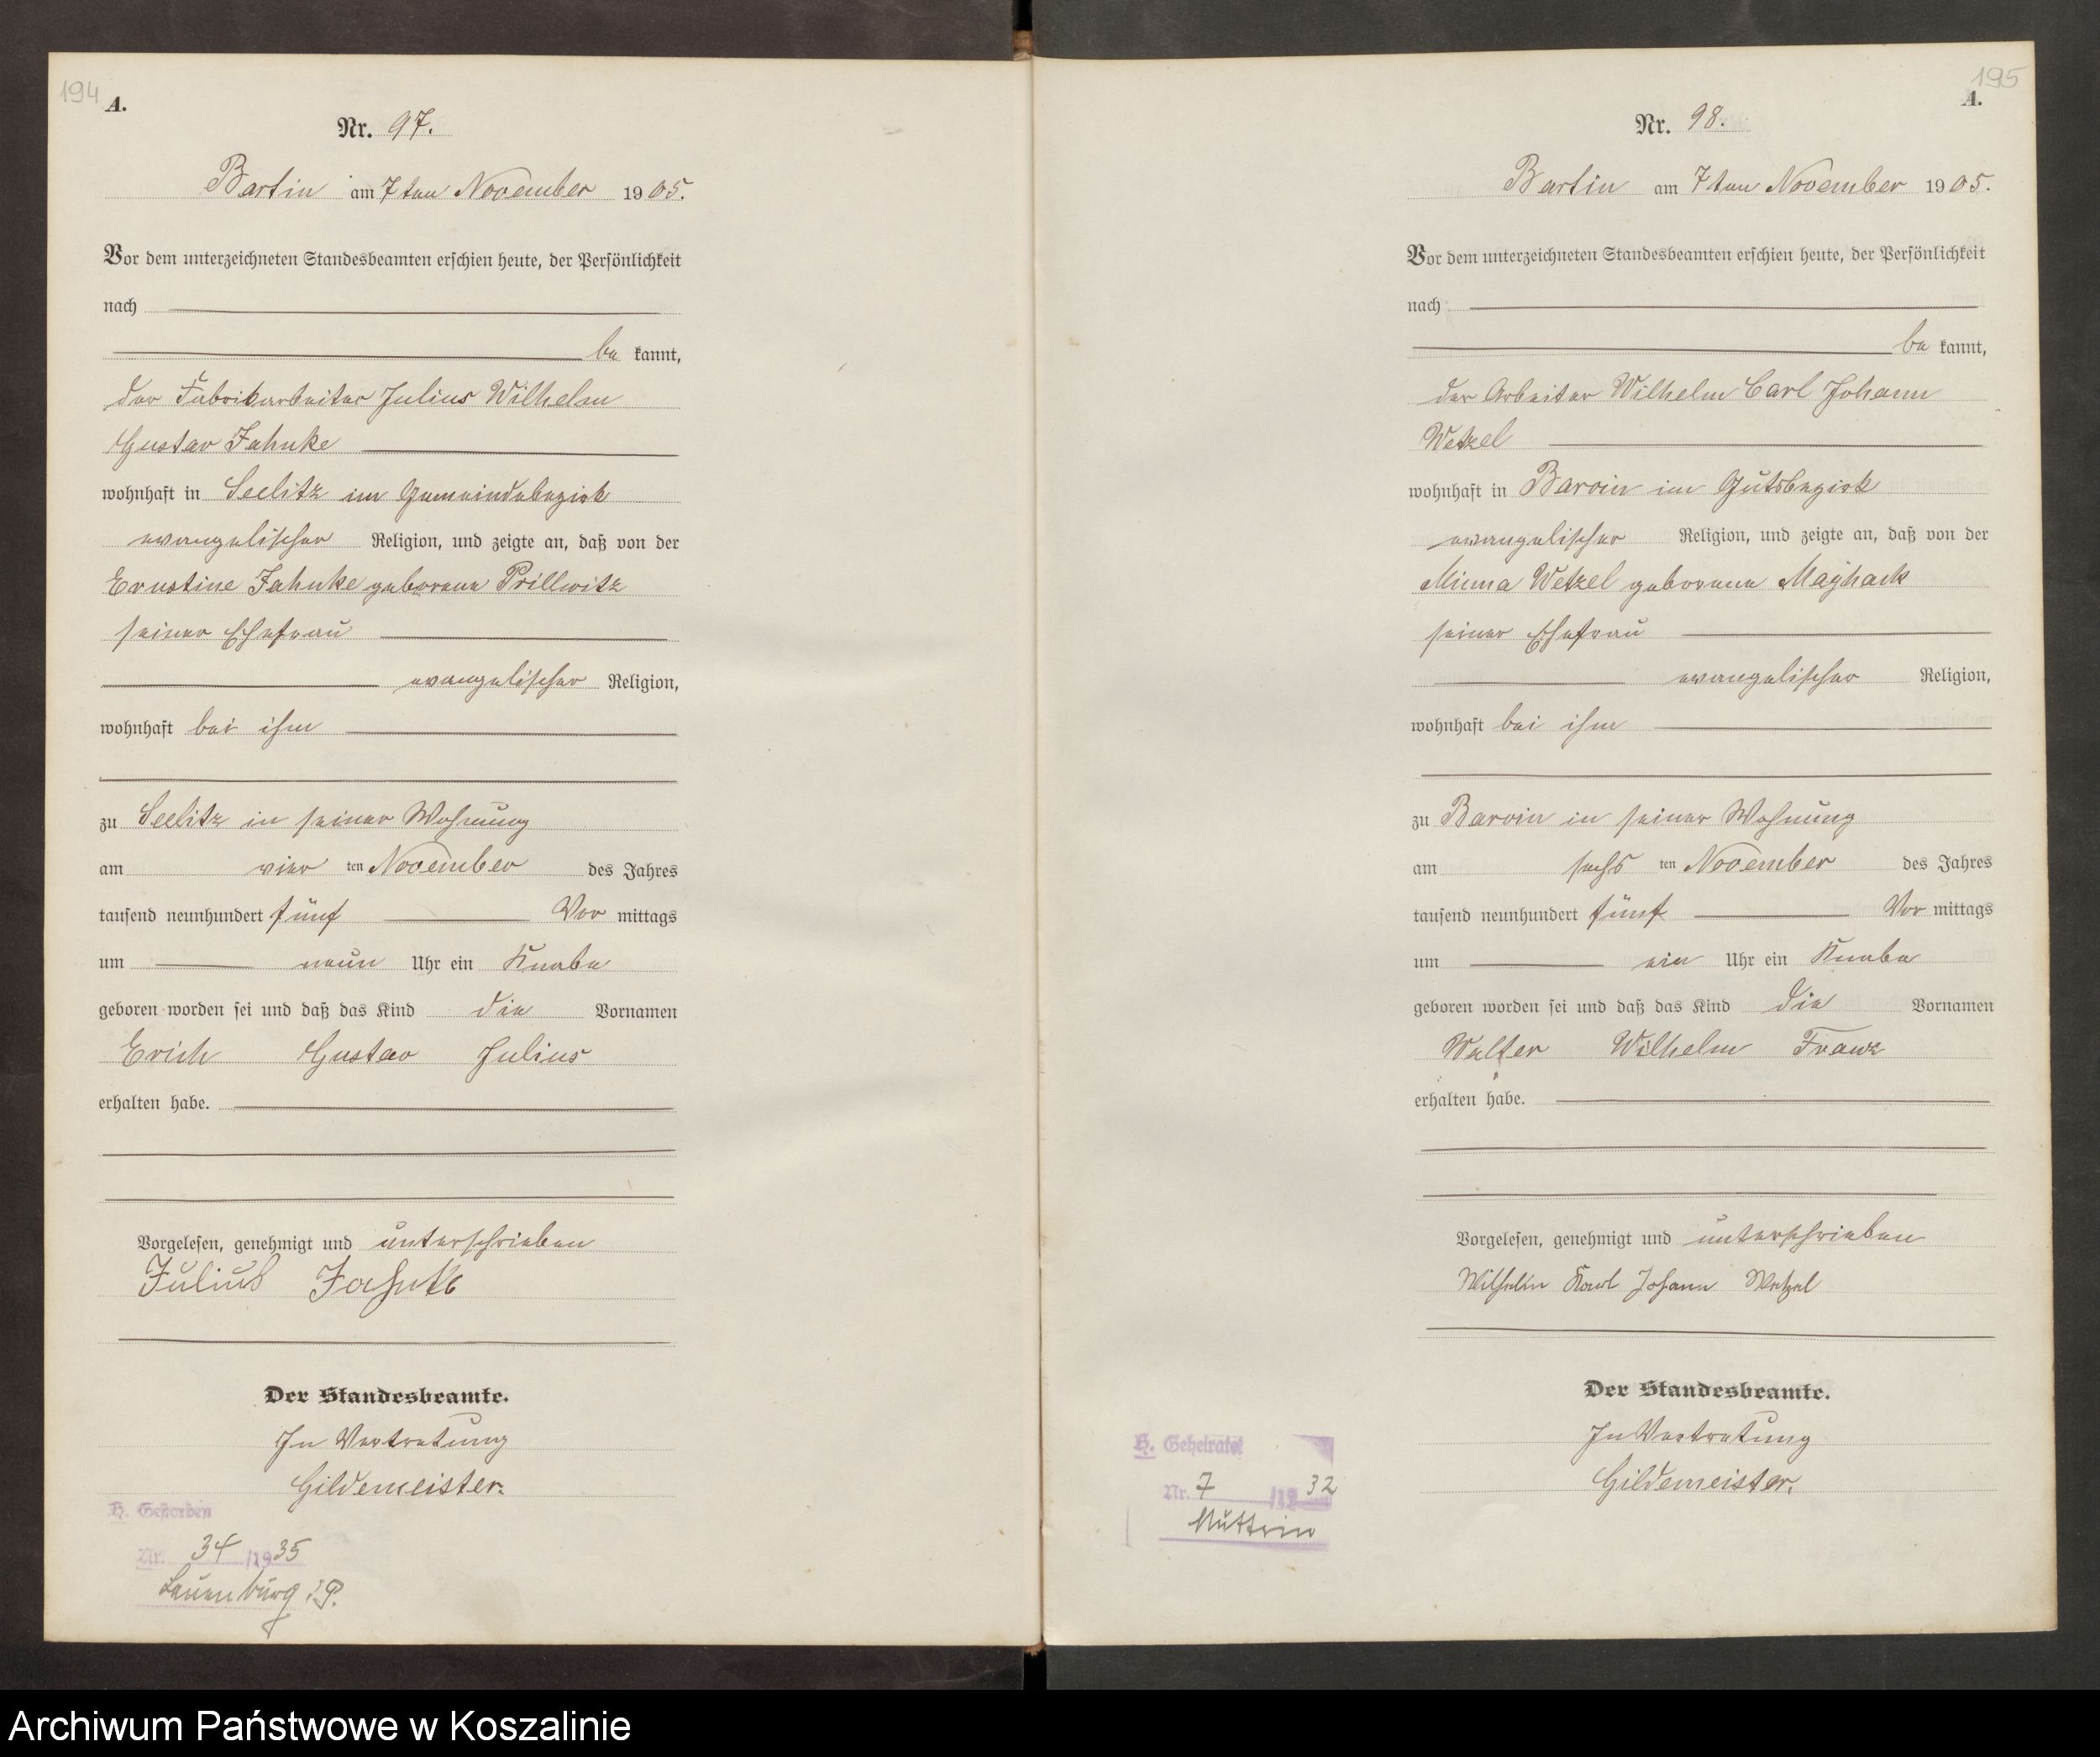 194
A.
Nr. 97.
Bartin am 7ten November 1905.
Vor dem unterzeichneten Standesbeamten erschien heute, der Persönlichkeit
nach
be kannt,
der Fabrikarbeiter Julius Wilhelm
Gustav Jahnke
wohnhaft in Seelitz im Gemeindebezirk
evangelischer Religion, und zeigte an, daß von der
Ernstine Jahnke geborene Prillwitz
seiner Ehefrau
evangelischer Religion,
wohnhaft bei ihm
zu Seelitz in seiner Wohnung
am vier ten November des Jahres
tausend neunhundert fünf Vor mittags
um neun Uhr ein Knabe
geboren worden sei und daß das Kind die Vornamen
Erich Gustav Julius
erhalten habe.
Vorgelesen, genehmigt und unterschrieben
Julius Jahnke
Der Standesbeamte.
In Vertretung
Gildemeister.
H. Gestorben
Nr. 34 /1935
Lauenburg i. P.
195
A.
Nr. 98.
Bartin am 7ten November 1905.
Vor dem unterzeichneten Standesbeamten erschien heute, der Persönlichkeit
nach
be kannt,
der Arbeiter Wilhelm Carl Johann
Wetzel
wohnhaft in Barvin im Gutsbezirk
evangelischer Religion, und zeigte an, daß von der
Minna Wetzel geborene Mayhack
seiner Ehefrau
evangelischer Religion,
wohnhaft bei ihm
zu Barvin in seiner Wohnung
am sechs ten November des Jahres
tausend neunhundert fünf Vor mittags
um ein Uhr ein Knabe
geboren worden sei und daß das Kind die Vornamen
Walter Wilhelm Franz
erhalten habe.
Vorgelesen, genehmigt und unterschrieben
Wilhelm Karl Johann Wetzel
Der Standesbeamte.
In Vertretung
Gildemeister.
H. Geheiratet
Nr. 7 /1932
Muttrin
Archiwum Państwowe w Koszalinie